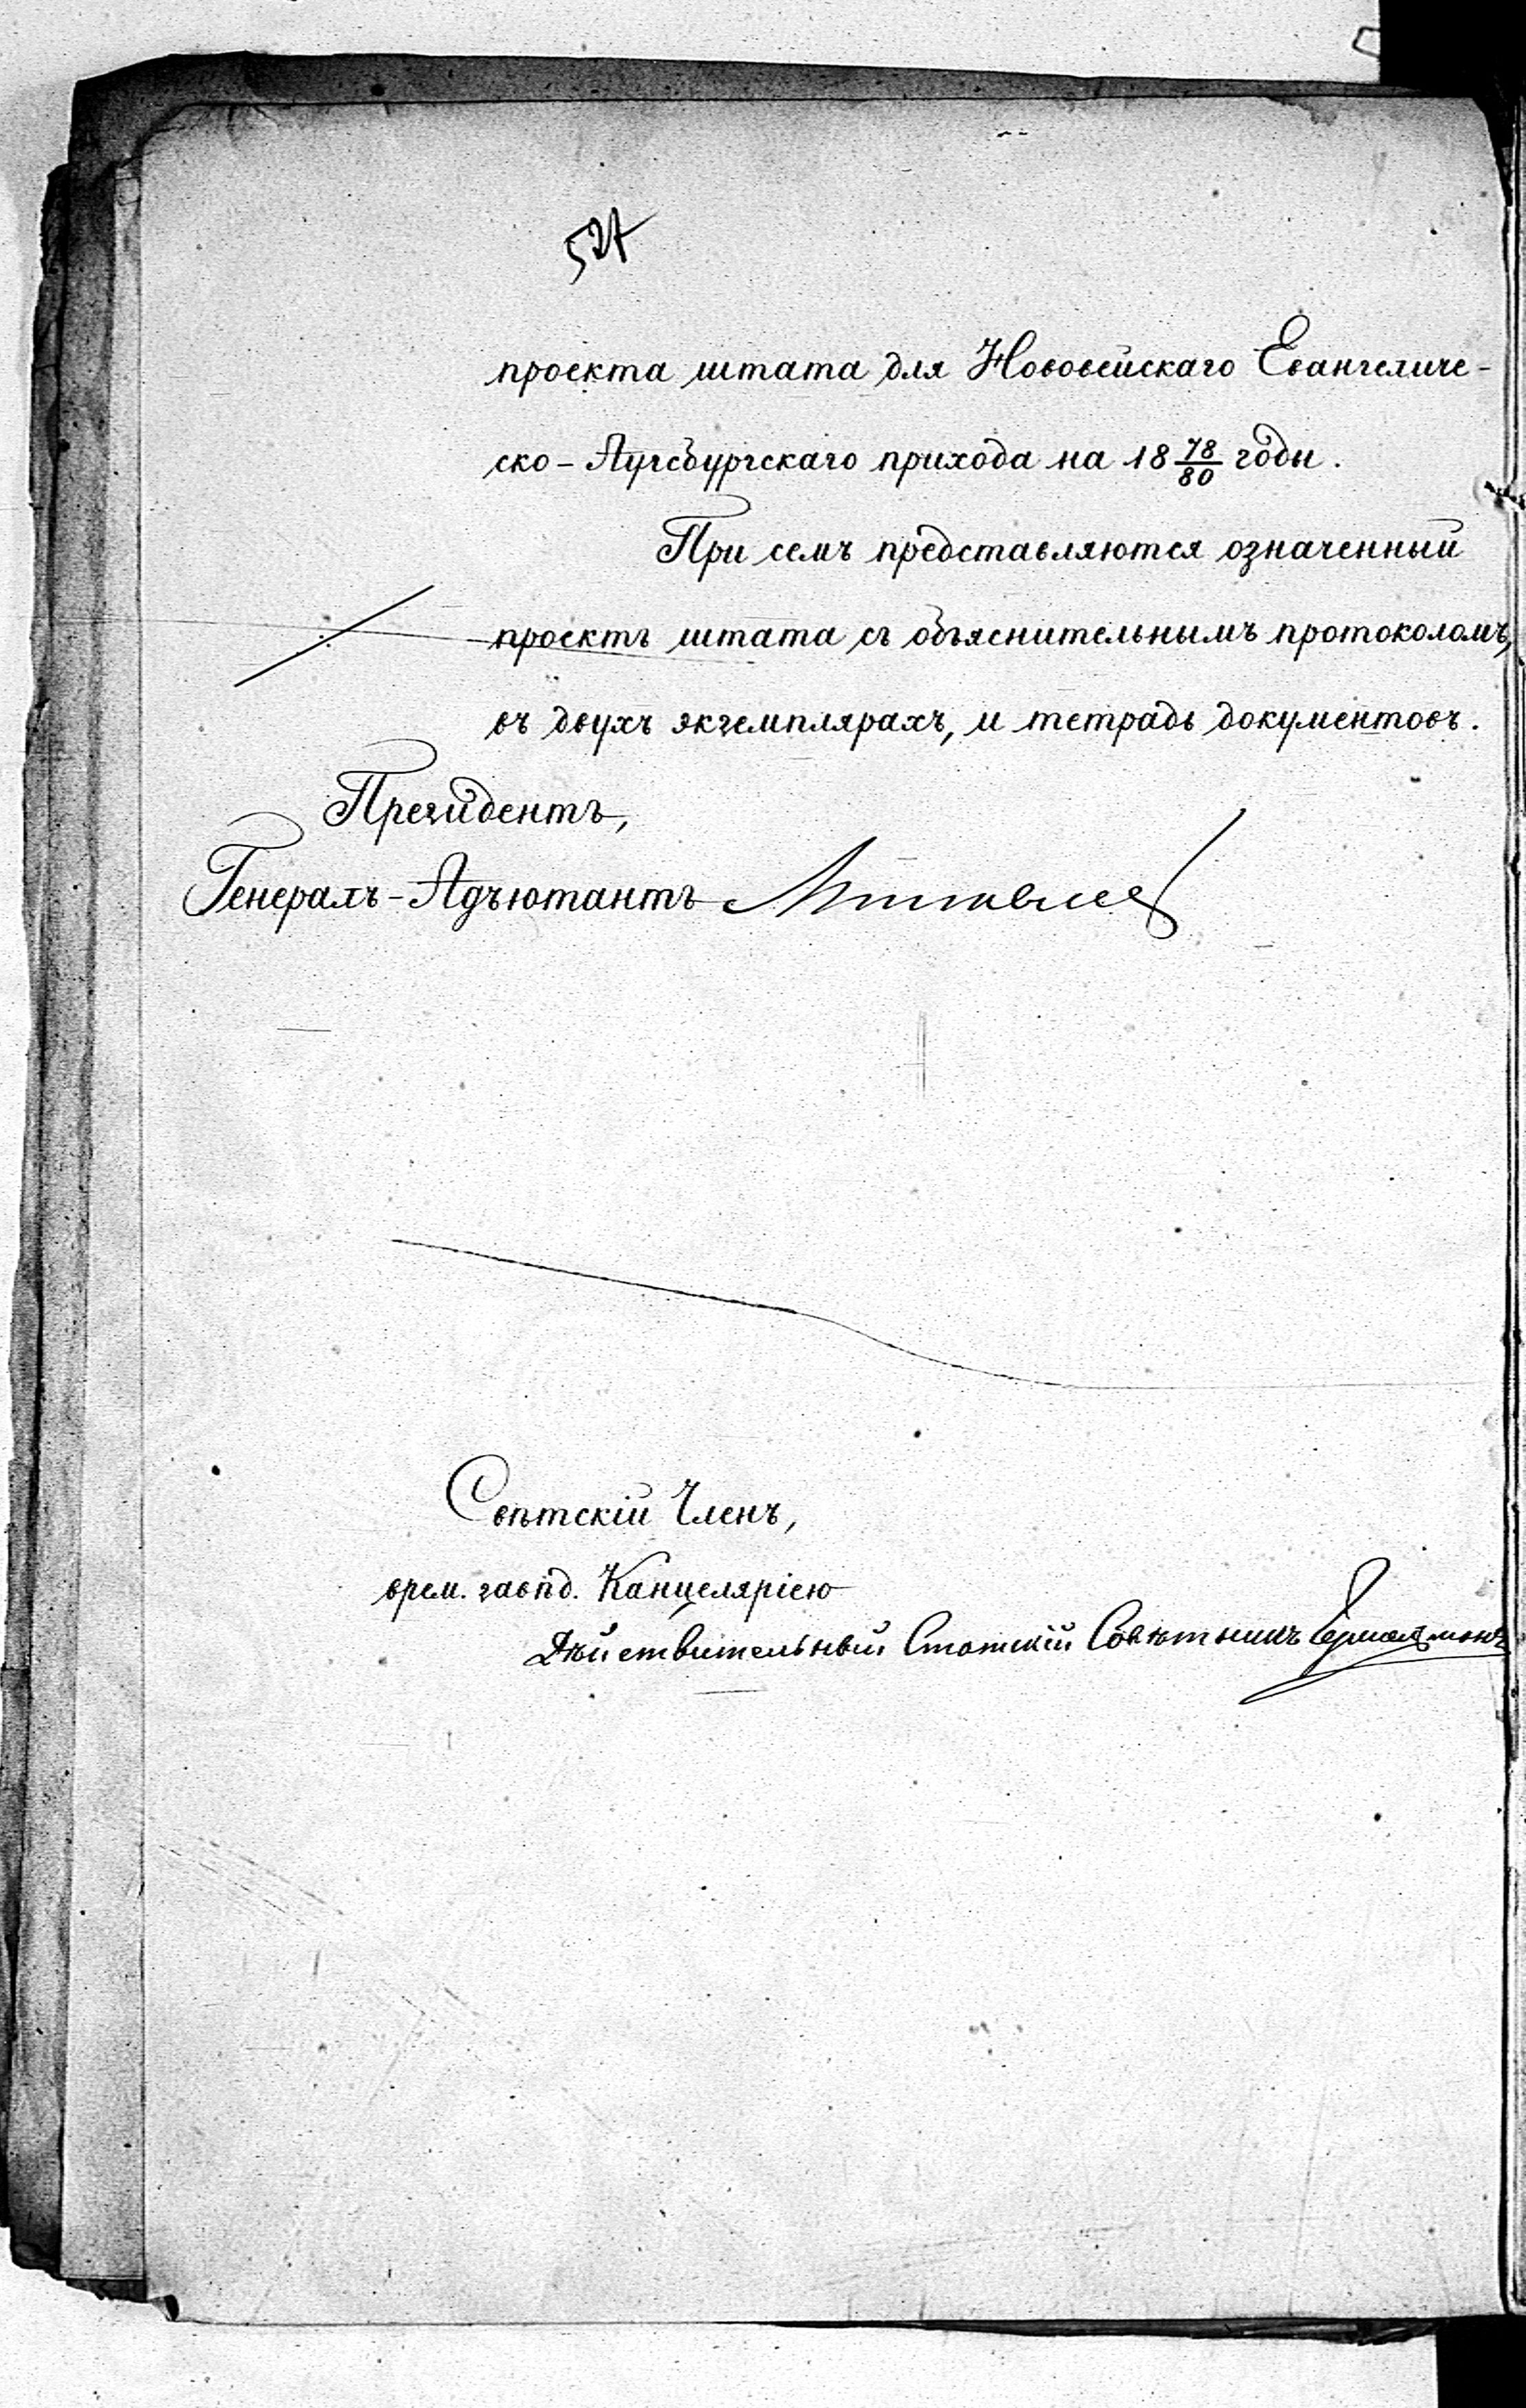 527
проекта штата для Нововейскаго Евангеличе-
ско-Аугсбургскаго прихода на 18 78/80 годы.
При семъ представляются означенный
проектъ штата съ объяснительнымъ протоколомъ,
въ двухъ экземплярахъ, и тетрадь документовъ.
Президентъ,
Генералъ-Адъютантъ
Свѣтскій Членъ,
врем. завѣд. Канцеляріею
Дѣйствительный Статскій Совѣтникъ